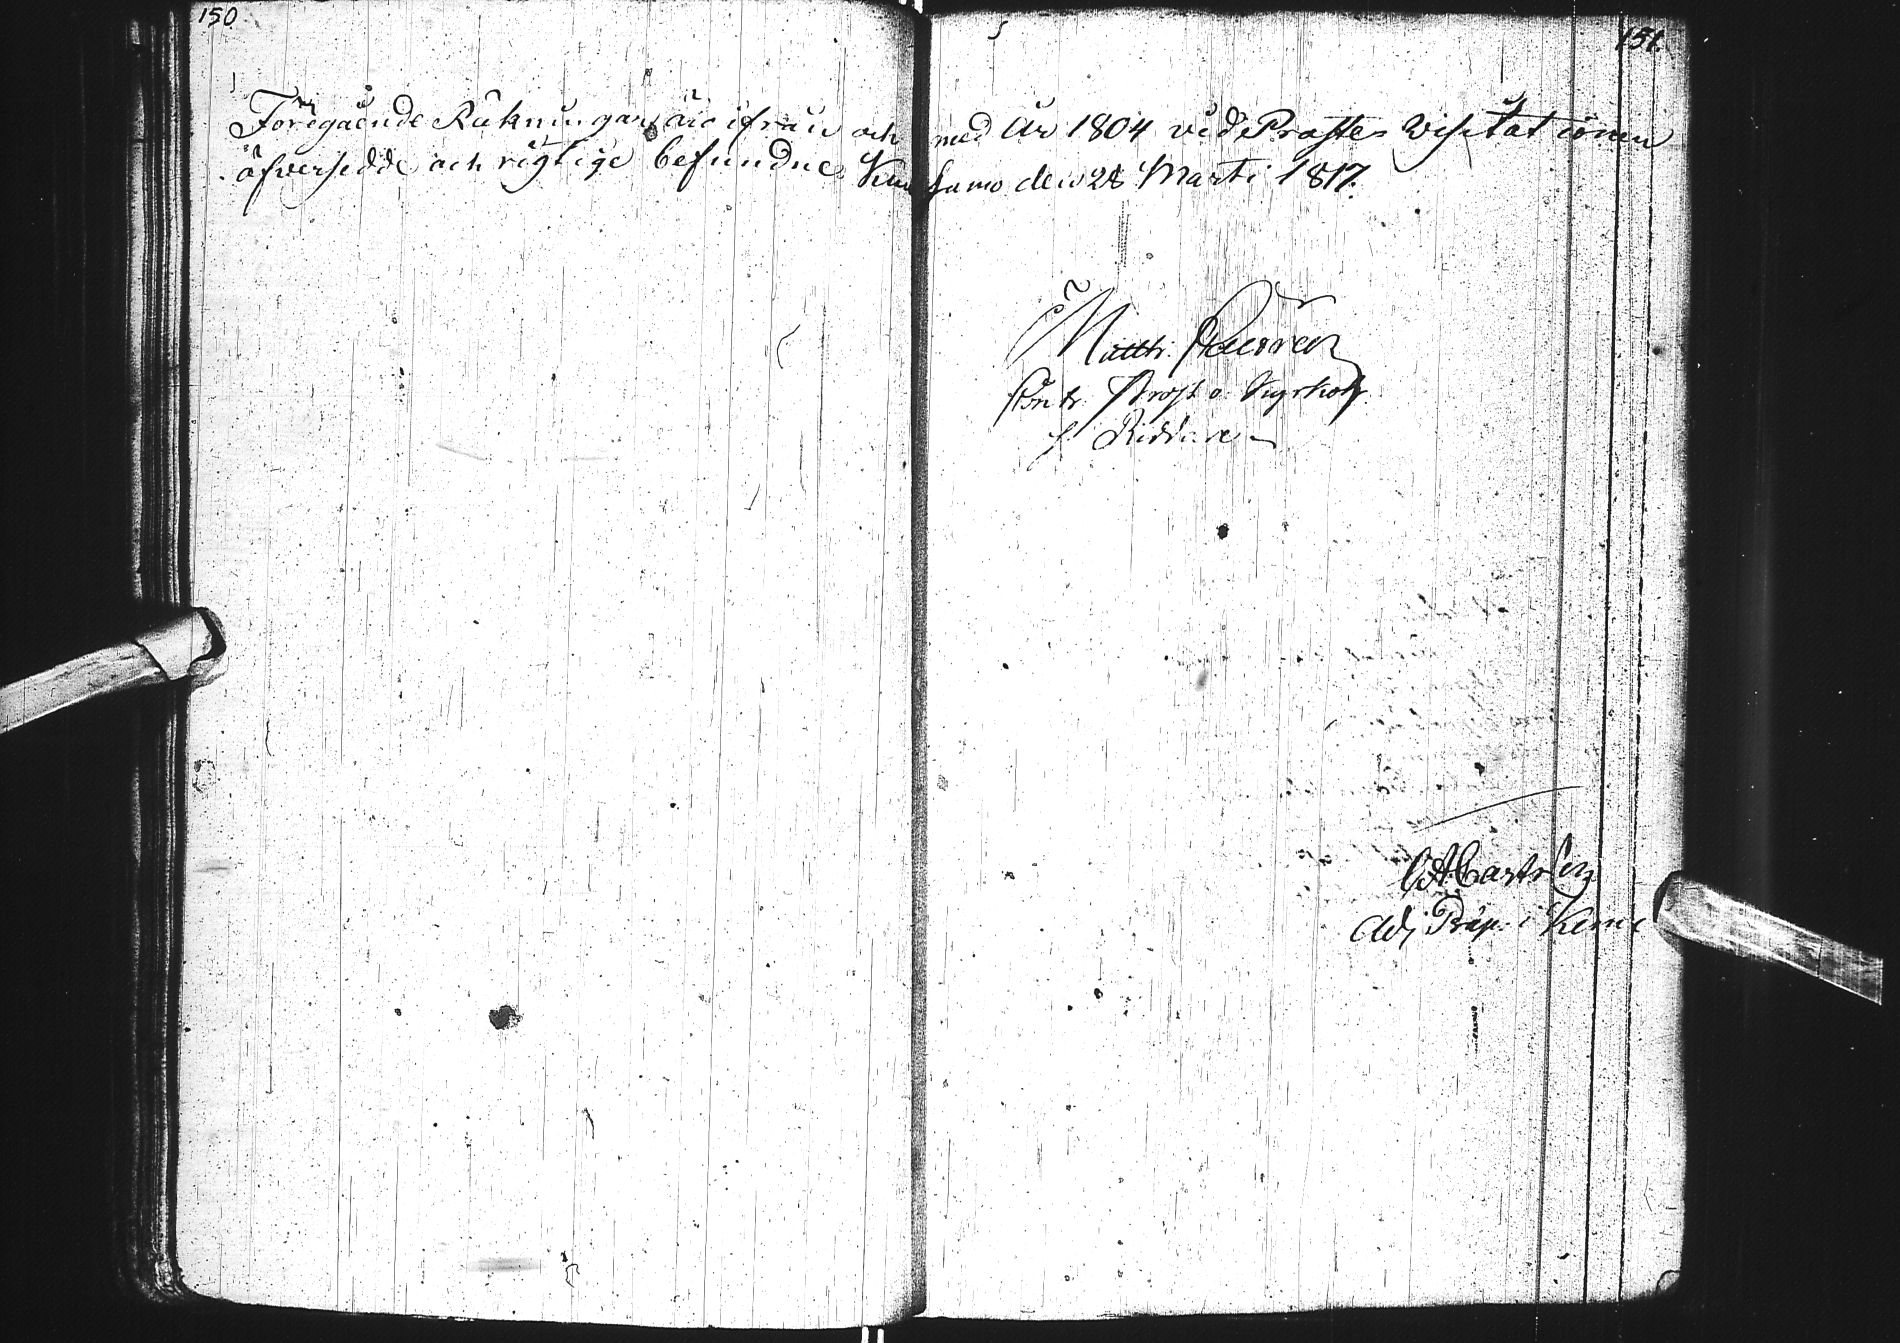 150.
151.
Föregående Räkningar äro ifrån och med År 1804 vid Prosts Visitationen
öfversedde och rigtige befundne. Kuusamo den 28 Marti 1817.
Matth:
Contr. Prost o. Kyrkoh
o. Riddare
CA Castrén
Adj Præp. i Kemi